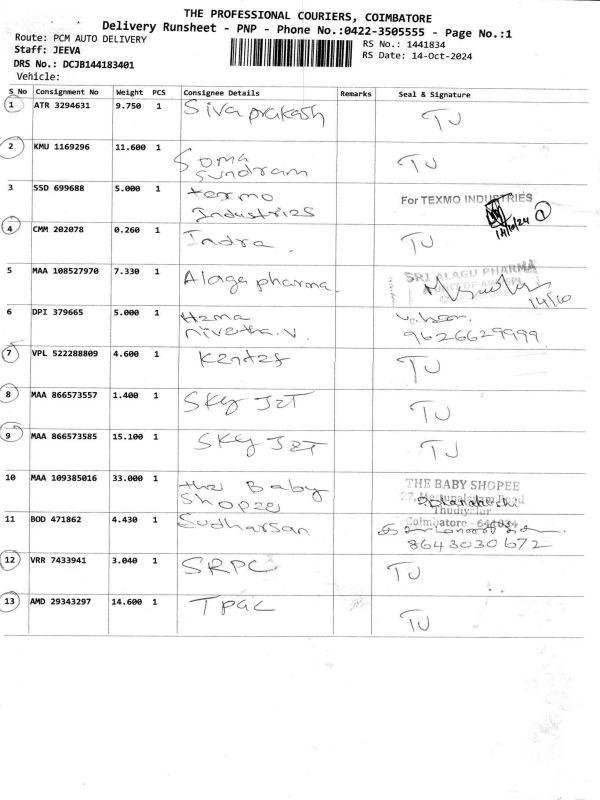 THE PROFESSIONAL COURIERS, COIMBATORE
Delivery Runsheet - PNP - Phone No.:0422-3505555 - Page No.:1
Route: PCM AUTO DELIVERY
RS No.: 1441834
Staff: JEEVA
RS Date: 14-Oct-2024
DRS No.: DCJB144183401
Vehicle:
S No Consignment No Weight PCS Consignee Details Remarks Seal & Signature
1 ATR 3294631 9.750 1 Sivaprakash TU
2 KMU 1169296 11.600 1 Soma Sundram TU
3 SSD 699688 5.000 1 texmo Industries For TEXMO INDUSTRIES 1
4 CMM 202078 0.260 1 Indra. TU
5 MAA 108527970 7.330 1 Alaga pharma. SRI ALAGU PHARMA 14/10
6 DPI 379665 5.000 1 Hema nivetha.V 9626629999
7 VPL 522288809 4.600 1 TU
8 MAA 866573557 1.400 1 SKY JET TU
9 MAA 866573585 15.100 1 SKY JET TU
10 MAA 109385016 33.000 1 the Baby Shopee THE BABY SHOPEE
Thudiyalur
Coimbatore - 641034
11 BOD 471862 4.430 1 Sudharsan 8643030672
12 VRR 7433941 3.040 1 SRPC TU
13 AMD 29343297 14.600 1 TPGC TU